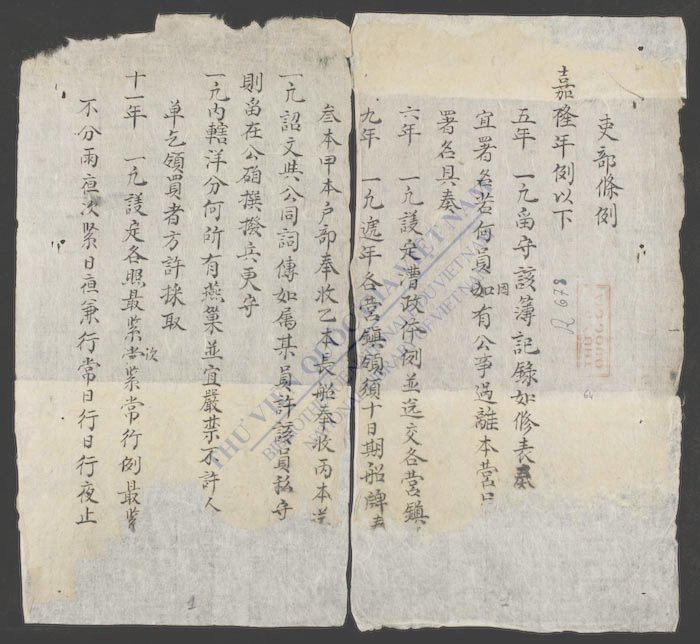 吏部條例
嘉隆年例以下
五年 一凢畄守該簿記錄如修表奏
宜署名若何員如有因公事過離本营
署名具奏
六年 一凢議定曹政条例並送交各营鎮
九年 一凢遞年各营鎮領須十日期船牌
叁本甲本户部奉收乙本長船奉收丙本
一凢詔文共公同詞傳如属某員許該員
則畄在公 撰撥兵更守
一凢内轄洋分何所有燕巢並宜嚴禁不許人
单乞領買者方許採取
十一年 一凢議定各照最緊次緊常行例最緊
不分雨夜次緊日夜兼行常日行日行夜止
R 678
THƯ VIỆN QUỐC GIA VIỆT NAM
1